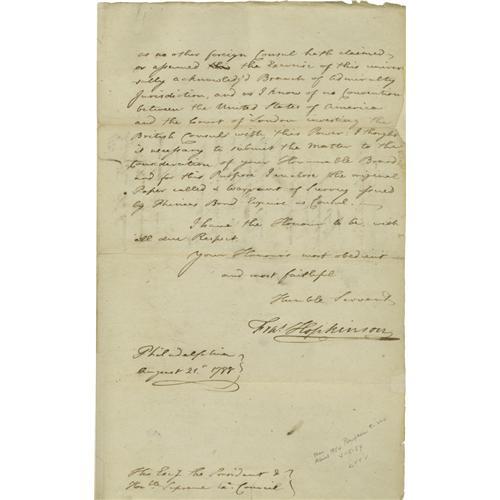 as no other foreign Consul hath claimed,
or assumed the Exercise of this univer
sally acknowledg'd Branch of Admiralty
Jurisdiction, and as I know of no Convention
between the United States of America
and the Court of London investing the
British Consul with this Power: I thought
it necessary to submit the Matter to the
Consideration of your Honourable Board
and for this Purpose I enclose the original
Paper called a Warrant of Survey issued
by Phineas Bond Esquire as Consul.
I have the Honour to be, with
all due Respect
Your Honours most obedient
and most faithful
Humble Servant
Fras. Hopkinson
Philadelphia
August 21st 1788
His Excy. the President &
Honble Supreme Council